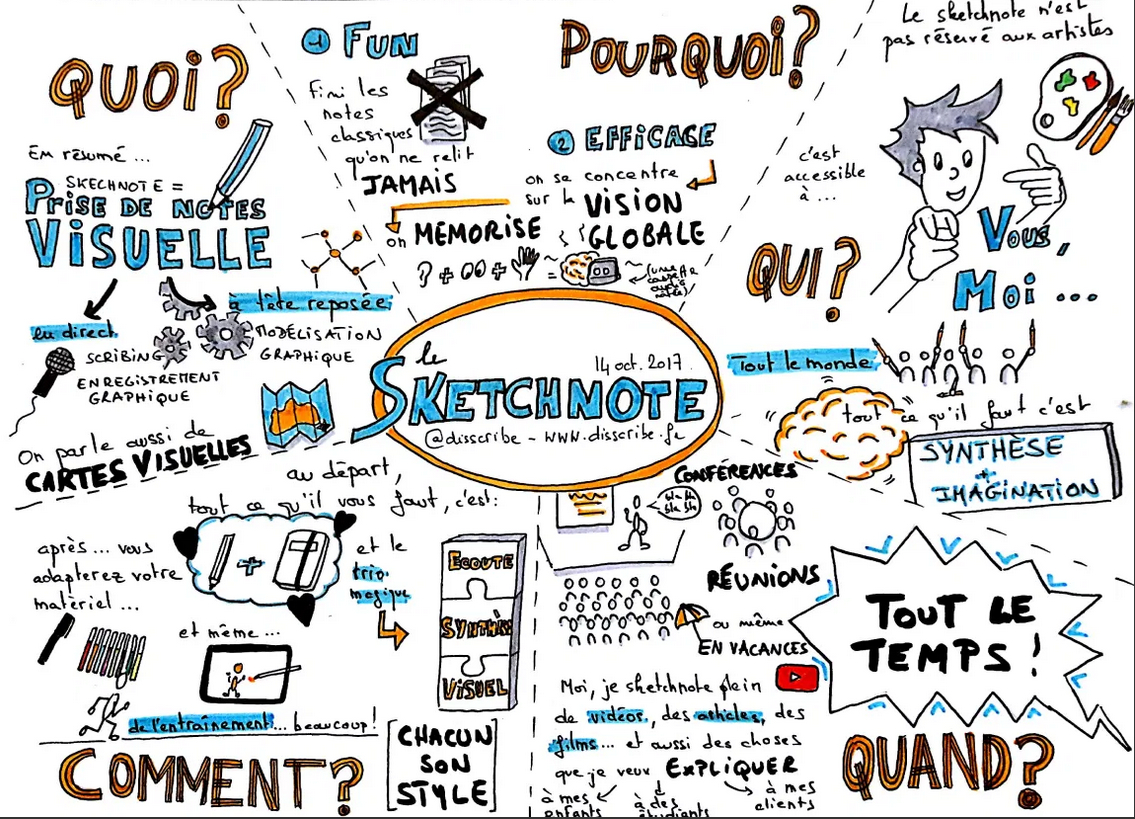 QUOI?
En résumé ...
SKECHNOTE =
PRISE DE NOTES
VISUELLE
en direct
SCRIBING
ENREGISTREMENT
GRAPHIQUE
à tête reposée
MODÉLISATION
GRAPHIQUE
On parle aussi de
CARTES VISUELLES
POURQUOI?
1 FUN
Fini les
notes
classiques
qu'on ne relit
JAMAIS
2 EFFICACE
on se concentre
sur la VISION
GLOBALE
on MEMORISE
? + + =
le
14 oct. 2017
SKETCHNOTE
@disscribe - www.disscribe.fr
Le sketchnote n'est
pas réservé aux artistes
c'est
accessible
à ...
QUI?
Vous,
Moi ...
Tout le monde
tout ce qu'il faut c'est
SYNTHÈSE
+
IMAGINATION
au départ,
tout ce qu'il vous faut, c'est:
+
après ... vous
adapterez votre
matériel ...
et même ...
et le
trio
magique
ECOUTE
SYNTHÈ
VISUEL
de l'entraînement ... beaucoup!
COMMENT?
CHACUN
SON
STYLE
CONFÉRENCES
bla bla
bla bla
RÉUNIONS
ou même
EN VACANCES
Moi, je sketchnote plein
de vidéos, des articles, des
films ... et aussi des choses
que je veux EXPLIQUER
à mes
enfants
à des
étudiants
à mes
clients
TOUT LE
TEMPS!
QUAND?